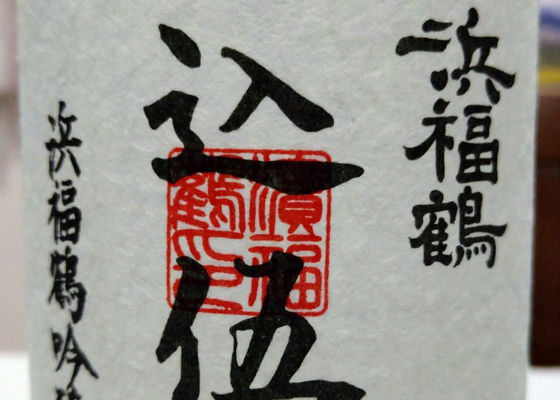 浜福鶴
込伍
濱福鶴印
浜福鶴吟